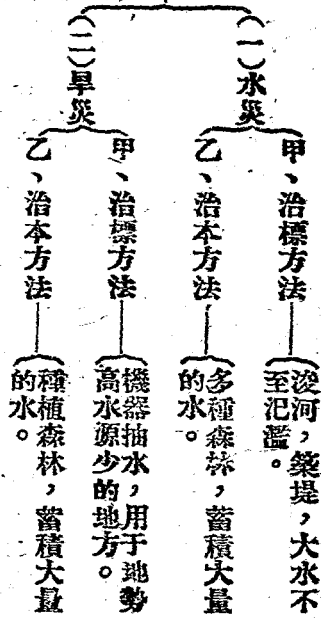 （一）水災
甲、治標方法
浚河，築堤，大水不
至氾濫。
乙、治本方法
多種森林，蓄積大量
的水。
（二）旱災
甲、治標方法
機器抽水，用于地勢
高水源少的地方。
乙、治本方法
種植森林，蓄積大量
的水。